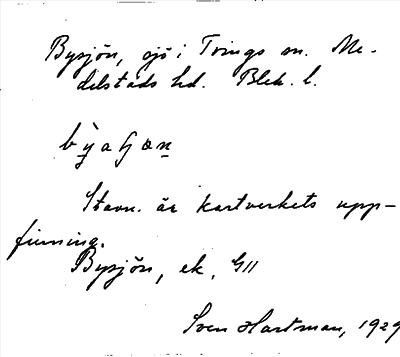 Bysjön, sjö i Tvings sn. Me-
delstads hd. Blek. l.
Stavn. är kartverkets upp-
finning.
Bysjön, ek, G11
Sven Hartman, 1929